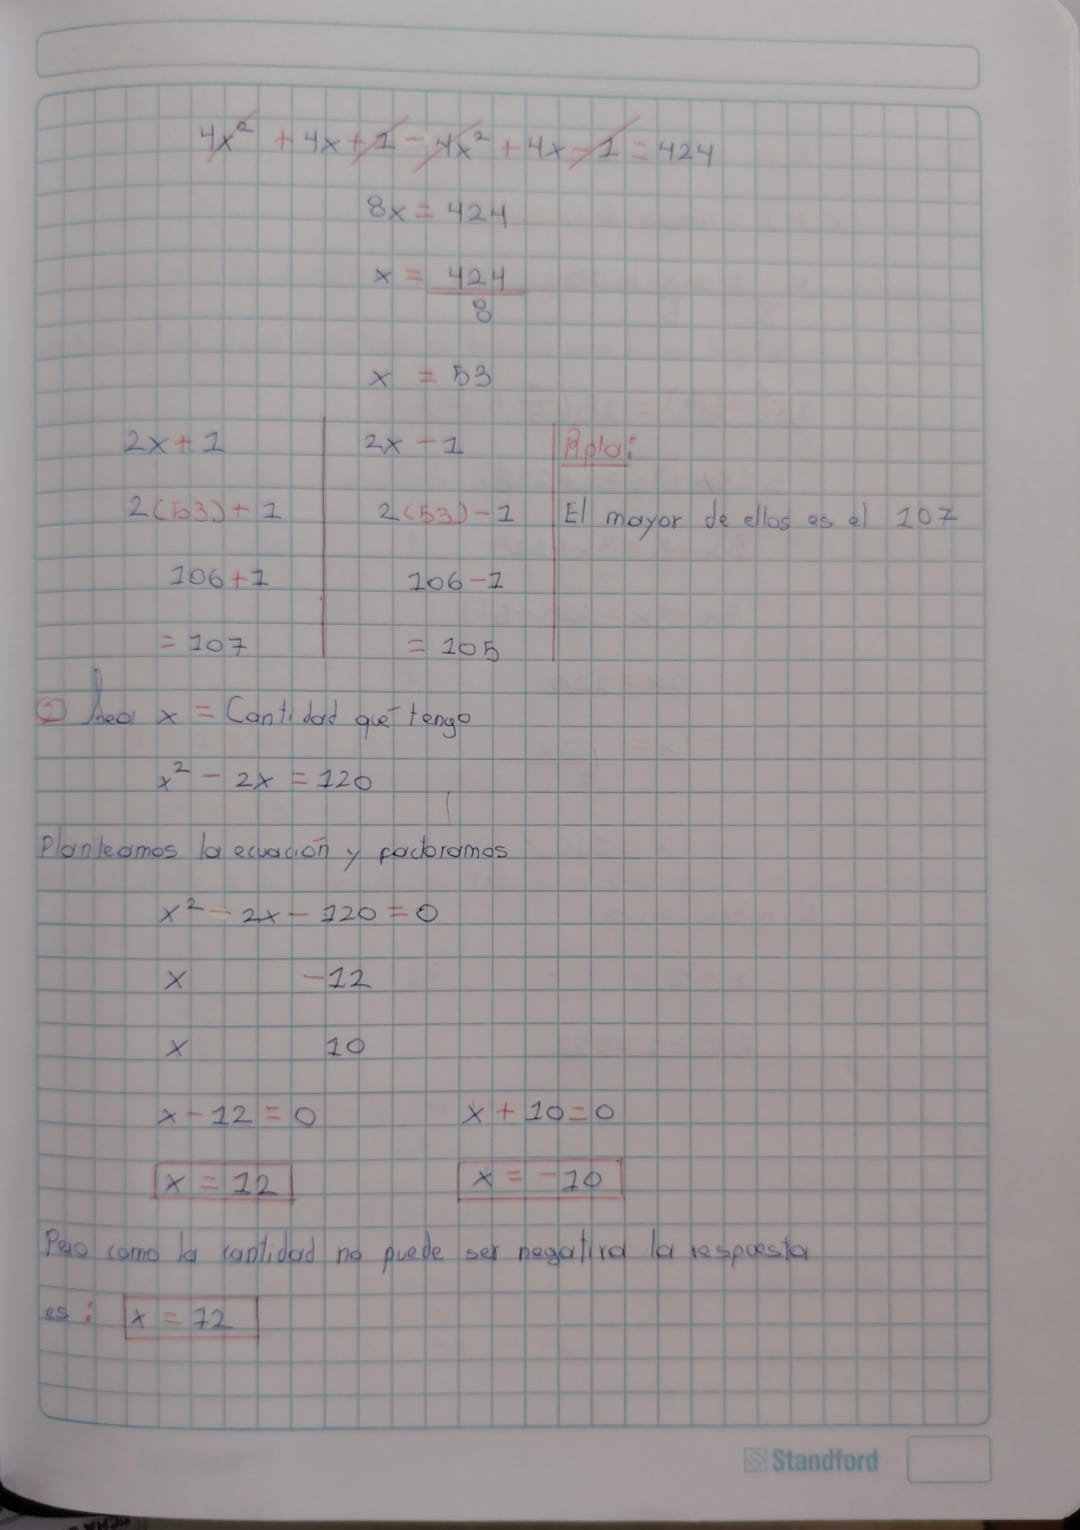 4x² + 4x + 1 - 4x² + 4x - 1 = 424
8x = 424
x = 424
8
x = 53
2x + 1 2x - 1 Rpta:
2(53) + 1 2(53) - 1 El mayor de ellos es el 107
106 + 1 106 - 1
= 107 = 105
② Sea x = Cantidad que tengo
x² - 2x = 120
Planteamos la ecuación y factoramos
x² - 2x - 120 = 0
x -12
x 10
x - 12 = 0 x + 10 = 0
x = 12 x = -10
Pero como la cantidad no puede ser negativa la respuesta
es: x = 12
Standford